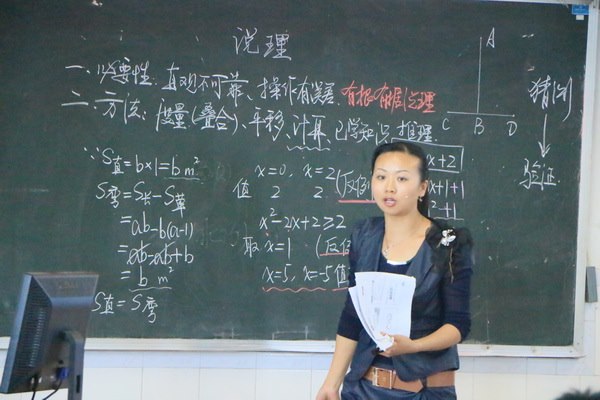 说理
一、必要性：直观不可靠、操作有误差. 有根有据说理
二、方法：度量(叠合)、平移、计算、已学知识推理.
∵S直=b×1=b m²
S弯=S长-S草
=ab-b(a-1)
=ab-ab+b
=b m²
S直=S弯
x=0, x=2
值 2 2 (反例
x²-2x+2≥2
取 x=1 (反例
x=5, x=-5 值
x+2
x+1
²+1
A
C B D
猜测
↓
验证